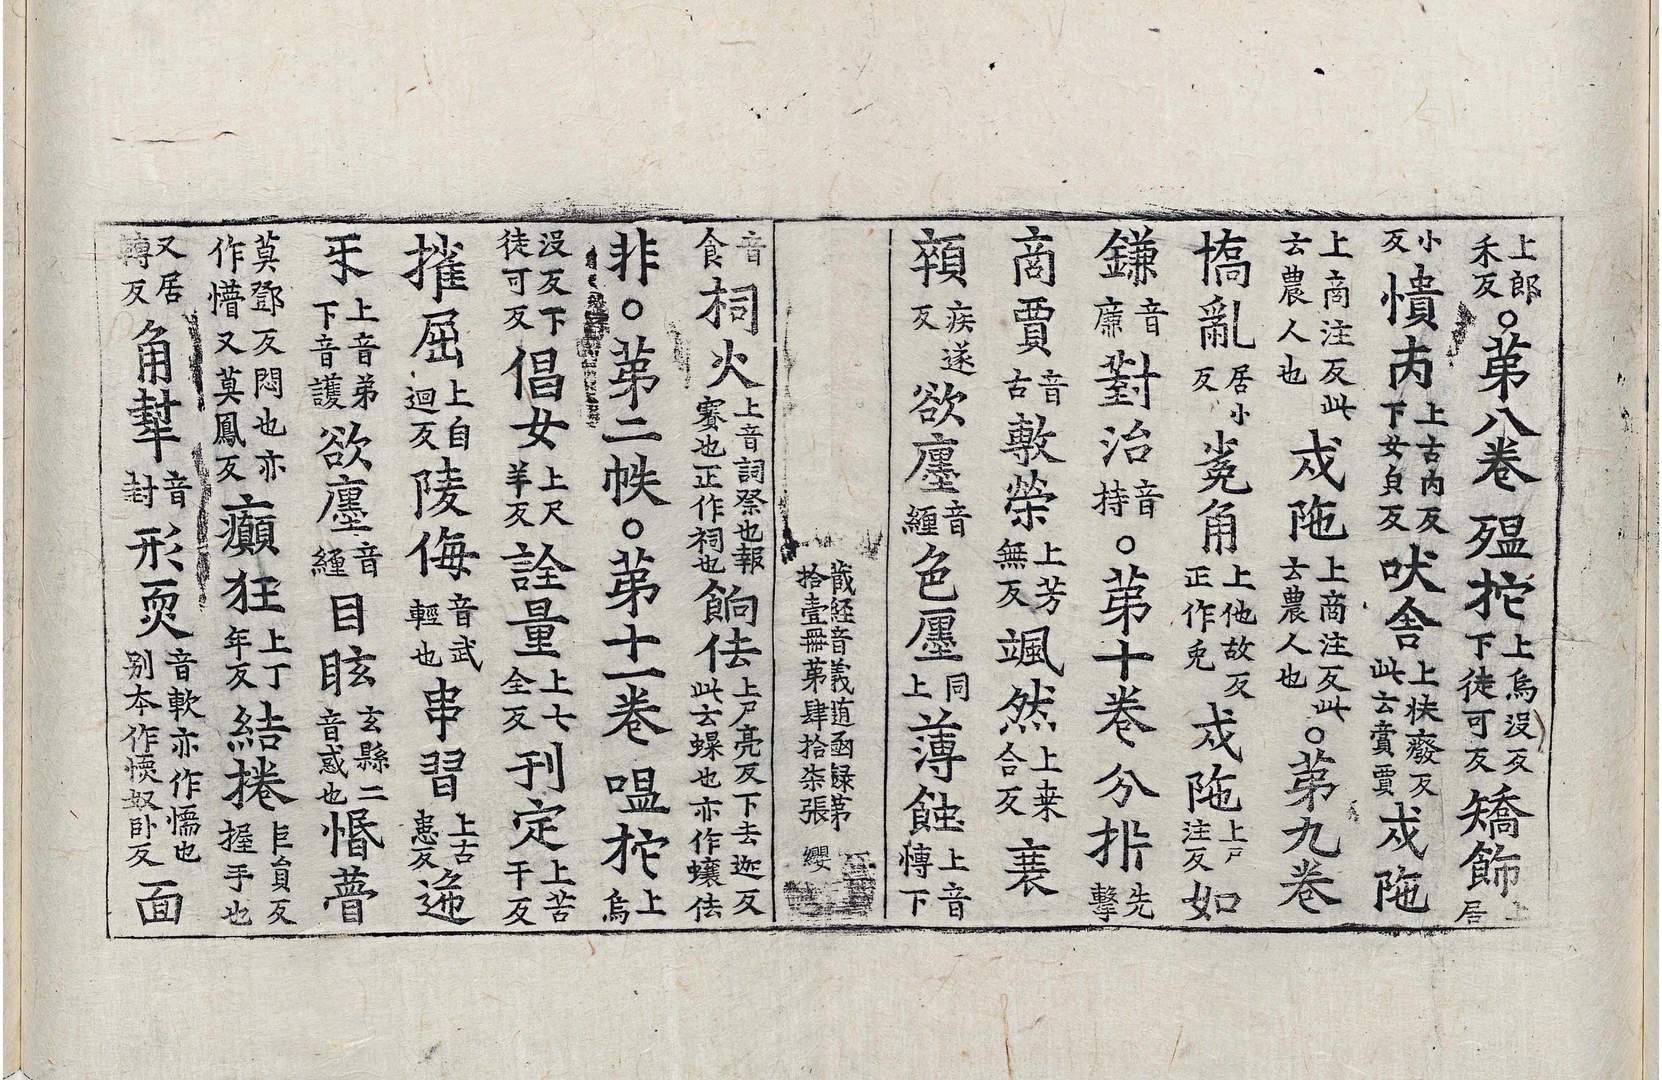 上郎禾反○第八卷 殟㧌上烏沒反下徒可反矯飾上居
小反憒𠕋上古內反下女皃反吠舍上扶癈反此云賞賈戍陁
上商注反此云農人也戍陁上商注反此云農人也○第九卷
撟亂居小反㝹角上他故反正作兔戍陁上尸注反如
鎌音廉對治音持○第十卷 分㭰先擊
商賈音古敷榮上芳無反颯然上桒合反 衰
顇疾遂反欲廛音纏色廛同上薄蝕上音慱下
藏経音義随函録第拾壹冊第肆拾柒張 纓
音食祠火上音詞祭也報賽也正作祠也餉佉上尸亮反下去迦反此云蠰也亦作蠰佉
非○第二帙○第十一卷 嗢㧌上烏
沒反下徒可反倡女上尺羊反詮量上七全反刊定上苦干反
摧屈上自迴反陵侮音武輕也串習上古患反递
㸦上音弟下音護欲廛音纏目眩玄縣二音惑也惛瞢
莫鄧反悶也亦作懵又莫鳳反癲狂上丁年反結捲巨員反握手也
又居轉反角㩧音封形耎音軟亦作懦也別本作愞奴卧反面